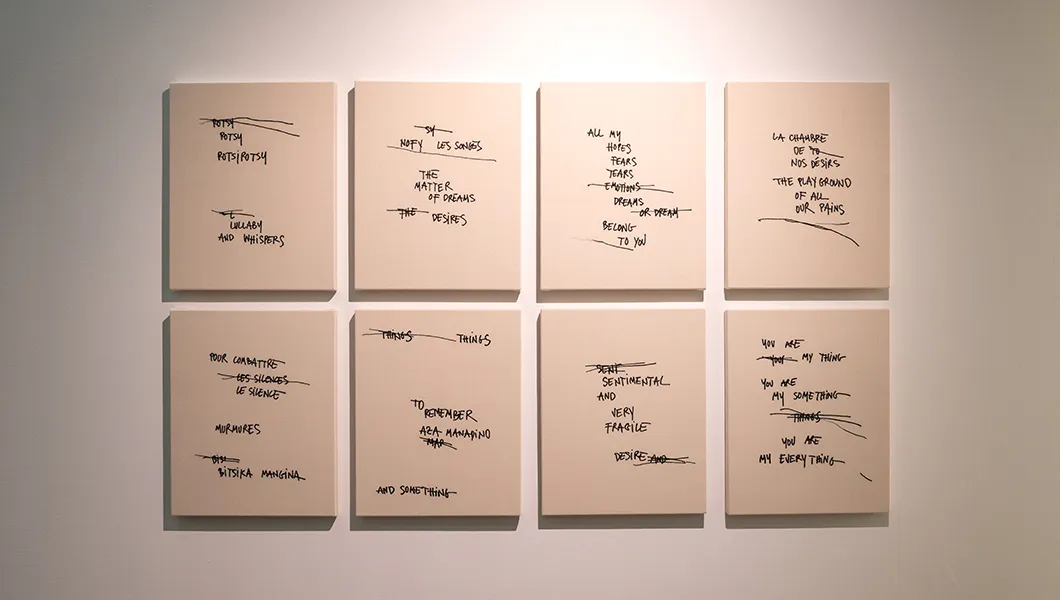 POTSY
POTSY
POTSIPOTSY
L
LULLABY
AND WHISPERS
SY
NOFY LES SONGES
THE
MATTER
OF DREAMS
THE DESIRES
ALL MY
HOPES
FEARS
TEARS
EMOTIONS
DREAMS
OR DREAM
BELONG
TO YOU
LA CHAMBRE
DE TO
NOS DÉSIRS
THE PLAYGROUND
OF ALL
OUR PAINS
POUR COMBATTRE
LES SILENCES
LE SILENCE
MURMURES
BITSIKA MANGINA
THINGS THINGS
TO
REMEMBER
AZA MANADINO
MAR
AND SOMETHING
SENT
SENTIMENTAL
AND
VERY
FRAGILE
DESIRE AND
YOU ARE
YOUR MY THING
YOU ARE
MY SOMETHING
THINGS
YOU ARE
MY EVERYTHING